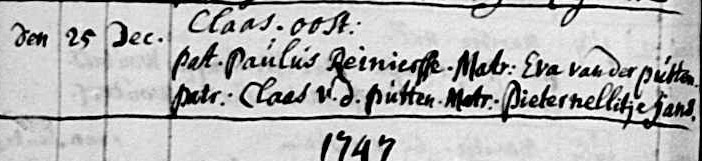 den 25 Dec. Claas. oost:
pat. Paulus Reiniersse. Matr: Eva van der putten.
patr: Claas v. d. putten. Metr: Pieternelletje Jans.
1747